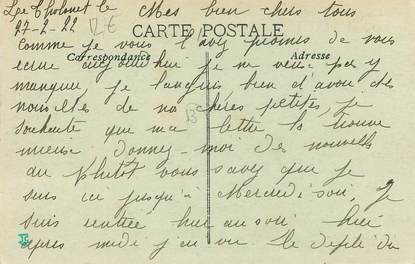 Le Tholonet le Mes bien chers tous
27-2-22 12€
CARTE POSTALE
Comme je vous l'avez promis de vous
Correspondance Adresse
ecrire aujourd'hui je ne veux pas y
manquer, je languis bien d'avoir des
nouvelles de nos chères petites, je
souhaite que ma lettre la trouve
mieux donnez-moi des nouvelles
au plutot vous savez que je
suis ici jusqu'à Mercredi soir, je
suis rentrée hier au soir hier
apres midi j'ai vu le défilé du